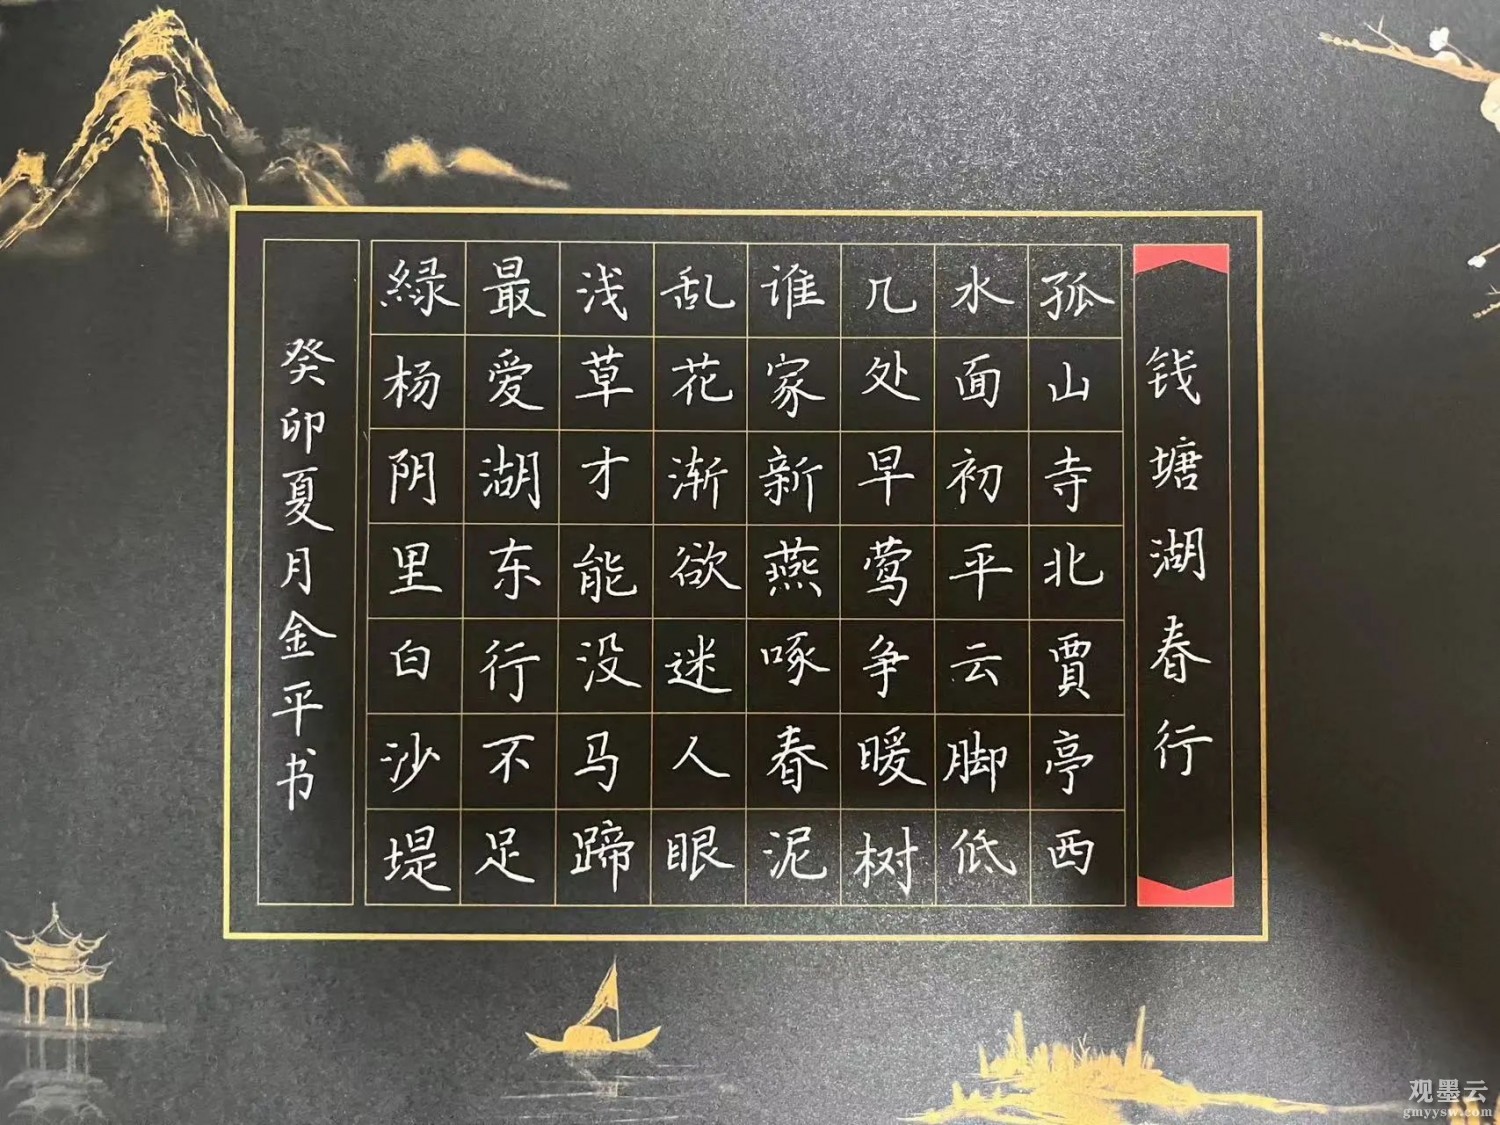 钱塘湖春行
孤山寺北賈亭西
水面初平云脚低
几处早莺争暖树
谁家新燕啄春泥
乱花渐欲迷人眼
浅草才能没马蹄
最爱湖东行不足
緑杨阴里白沙堤
癸卯夏月金平书
观墨云
gmyysw.com